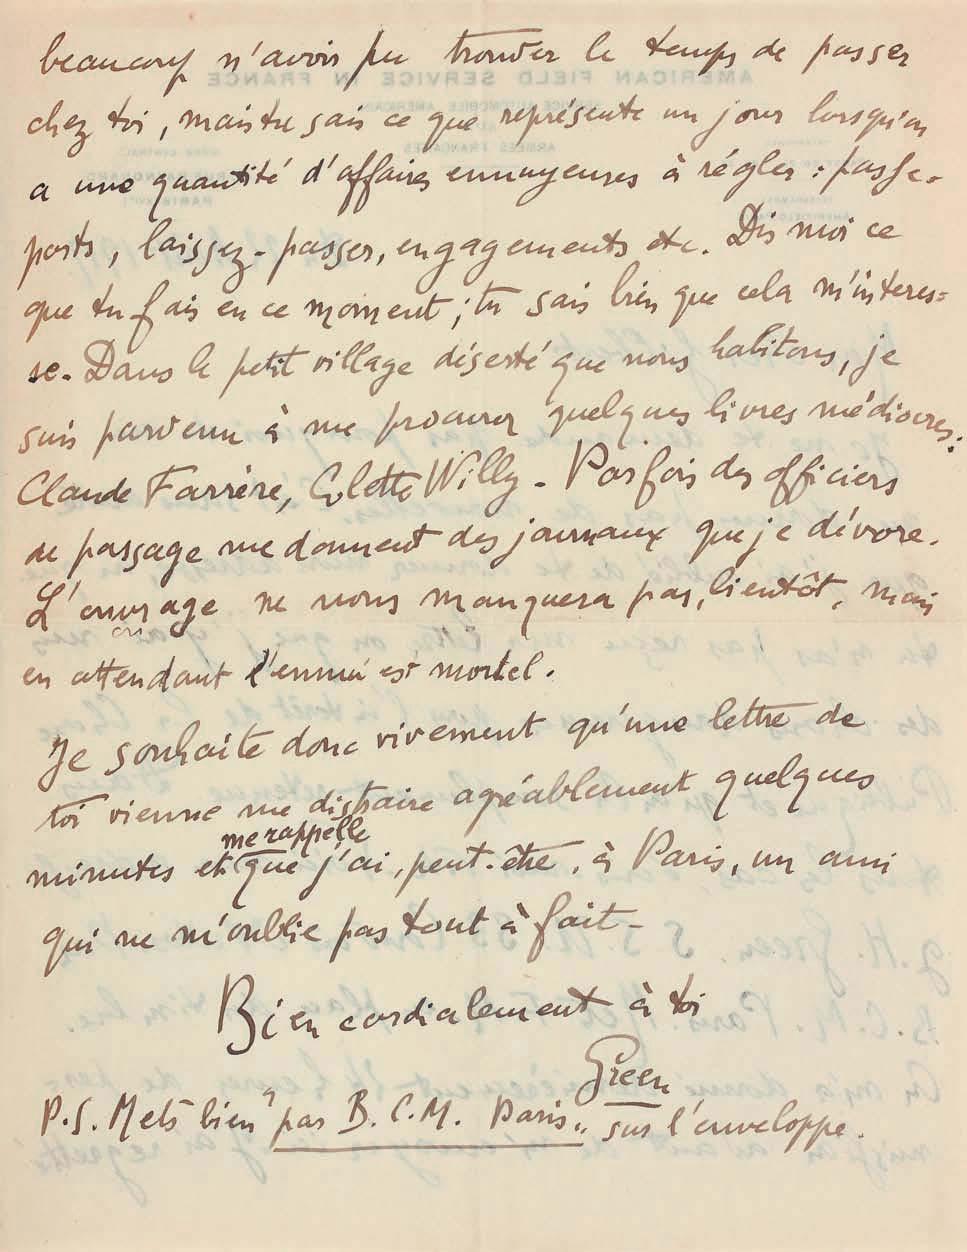 beaucoup n'avoir pu trouver le temps de passer
chez toi, mais tu sais ce que représente un jour lorsqu'on
a une quantité d'affaires ennuyeuses à régler : passe-
ports, laissez-passer, engagements etc. Dis moi ce
que tu fais en ce moment ; tu sais bien que cela m'interes-
se. Dans le petit village déserté que nous habitons, je
suis parvenu à me procurer quelques livres médiocres :
Claude Farrère, Colette Willy - Parfois des officiers
de passage me donnent des journaux que je dévore.
L'ouvrage ne nous manquera pas, bientôt, mais
en attendant l'ennui est mortel.
Je souhaite donc vivement qu'une lettre de
toi vienne me distraire agréablement quelques
me rappelle
minutes et que j'ai, peut-être, à Paris, un ami
qui ne m'oublie pas tout à fait -
Bien cordialement à toi
Green
P.S. Mets bien "par B.C.M. Paris" sur l'enveloppe.